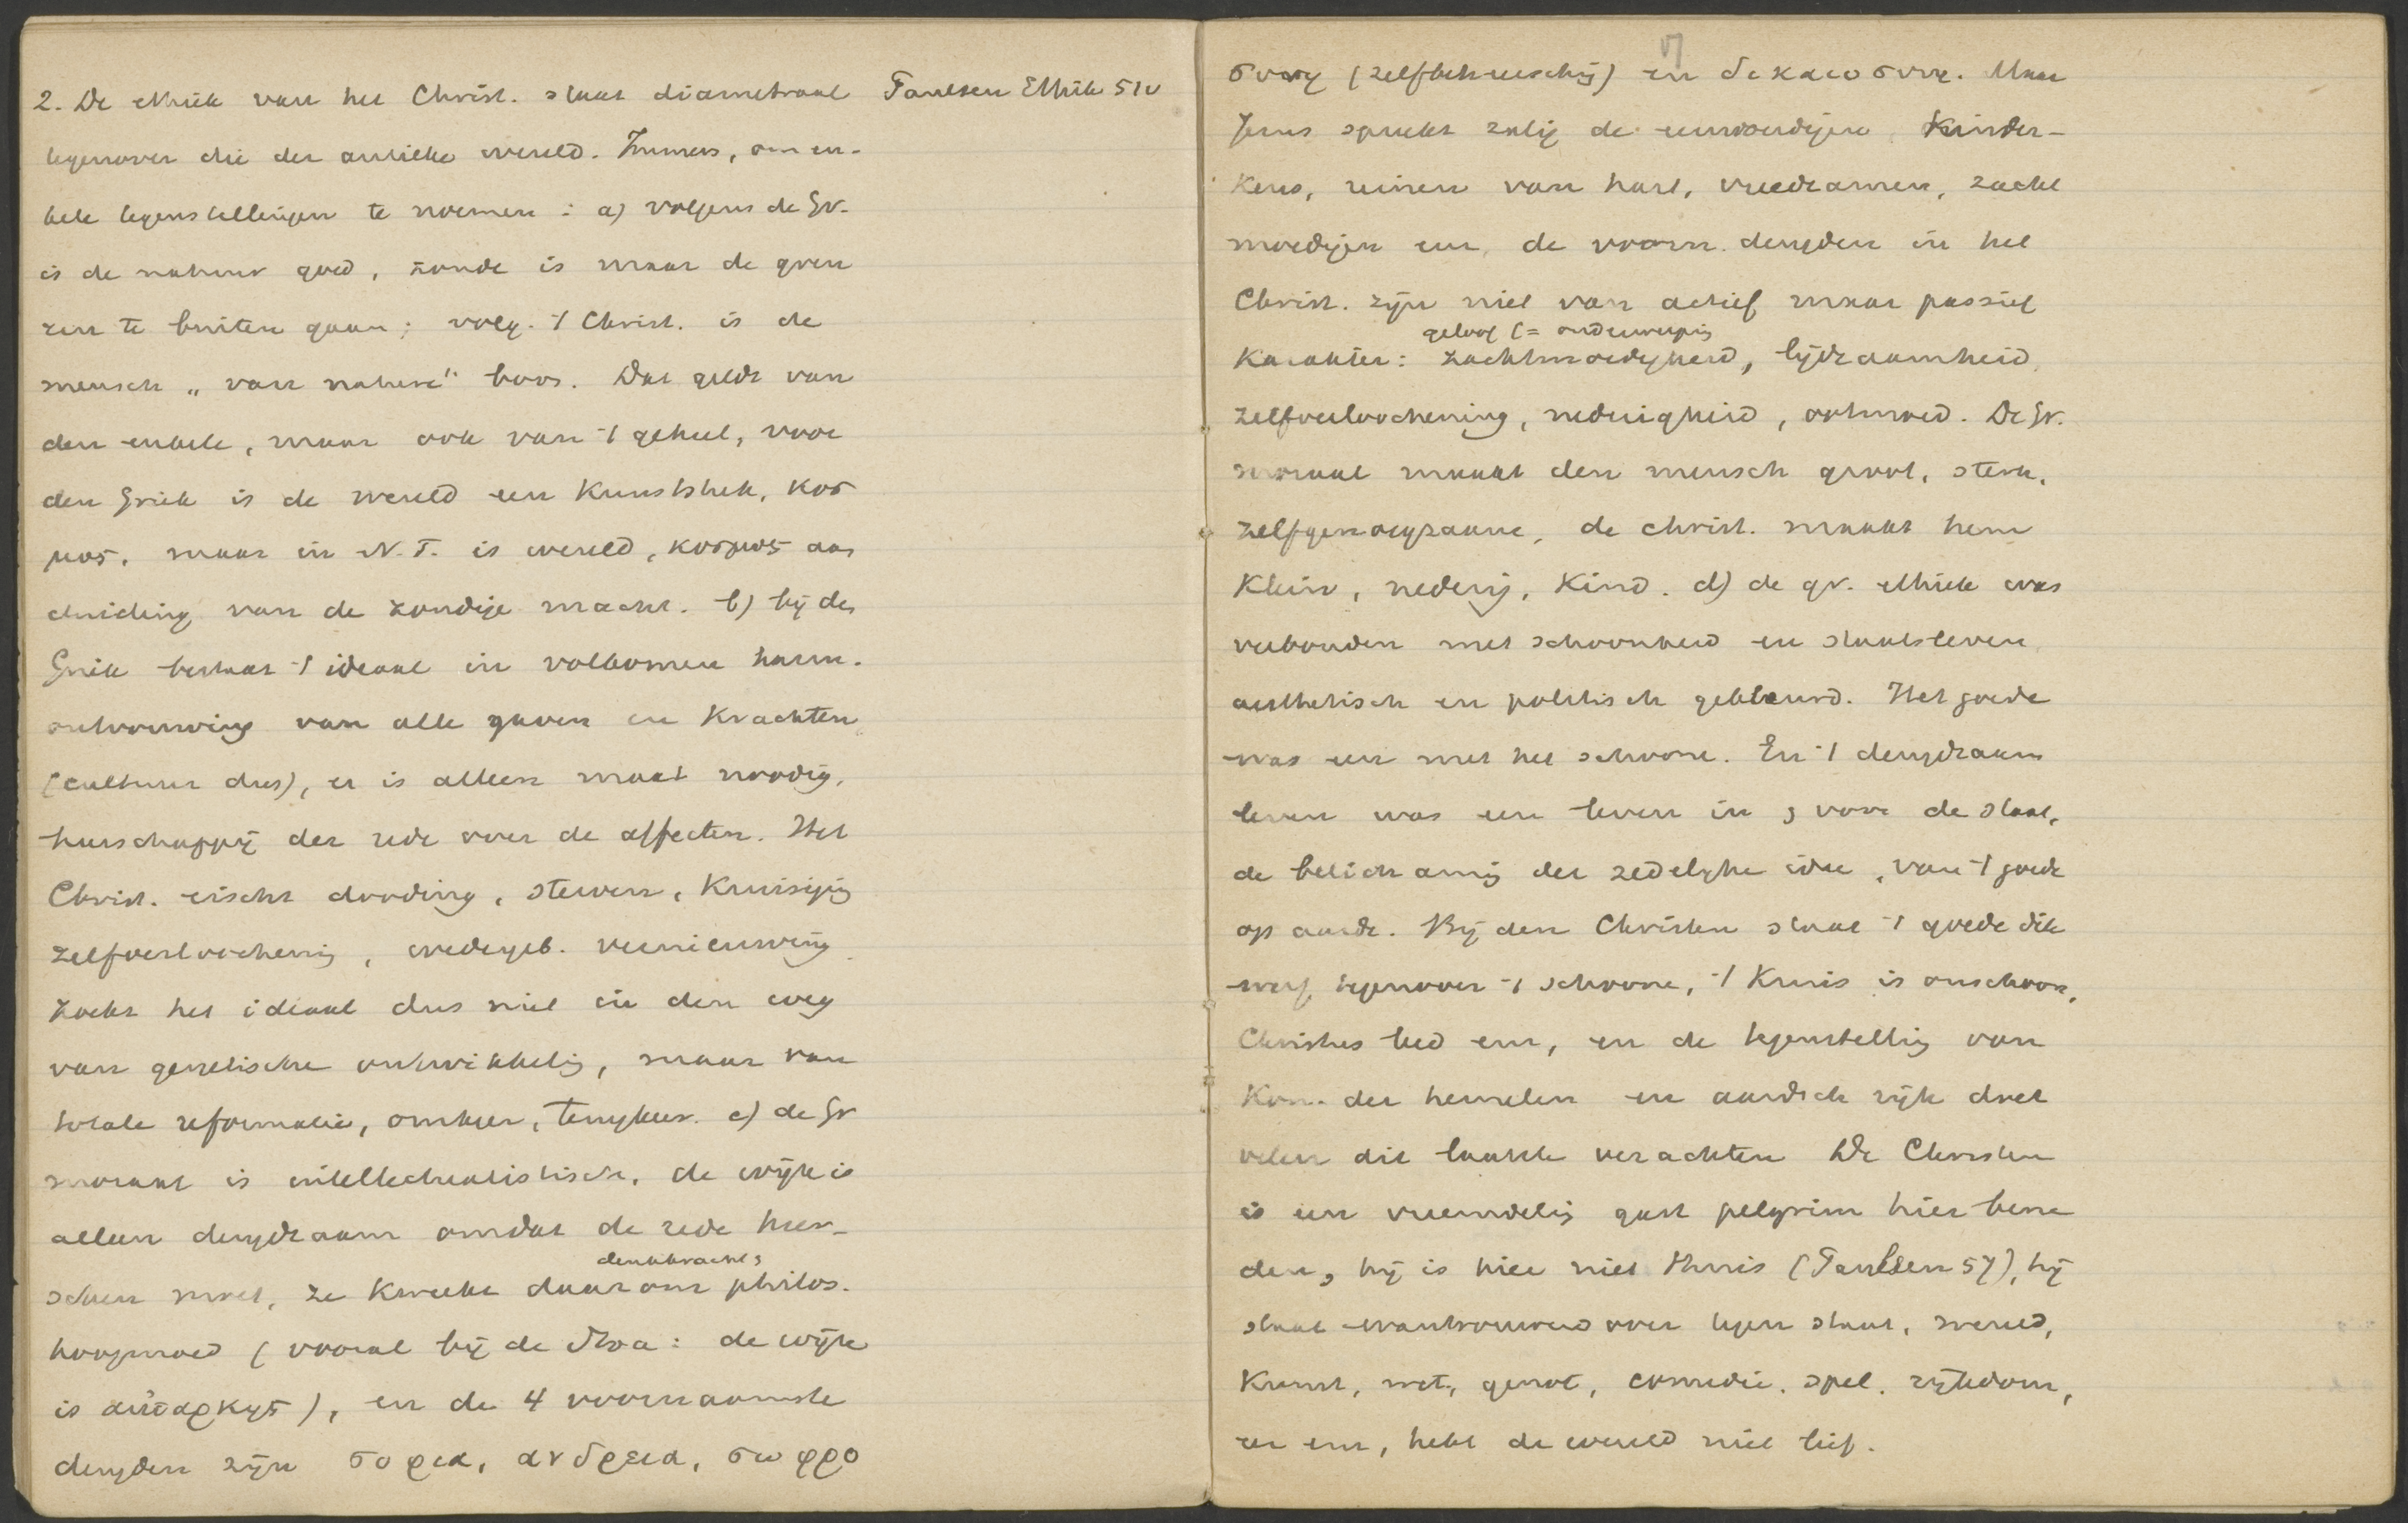 2. De ethiek van het Christ. staat diametraal
Paulsen Ethik 51v
tegenover die der antieke wereld. Immers, om en-
kele tegenstellingen te noemen: a) volgens de Gr.
is de natuur goed, zonde is maar de gren
zen te buiten gaan; volg. 't Christ. is de
mensch „van nature" boos. Dat geldt van
den enkele, maar ook van 't geheel, voor
den Griek is de wereld een Kunststuk, κοσ
μος, maar in N.T. is wereld, κοσμος aan
duiding van de zondige macht. b) bij den
Griek bestaat 't ideaal in volkomen harm.
ontvouwing van alle gaven en Krachten
(cultuur dus), er is alleen maat noodig,
heerschappij der rede over de affecten. Het
Christ. eischt dooding, sterven, Kruisiging
zelfverloochening, wedergeb. vernieuwing
zoekt het ideaal dus niet in den weg
van genetische ontwikkelig, maar van
totale reformatie, omkeer, terugkeer. c) de Gr
moraal is intellectualistisch, de wijze is
alleen deugdzaam omdat de rede heer-
denkkracht &
schen moet, ze kweekt daarom philos.
hoogmoed (vooral bij de Stoa: de wijze
is αυταρκης), en de 4 voornaamste
deugden zijn σοφια, ανδρεια, σωφρο
συνη (zelfbeheersching) en δικαιοσυνη. Maar
Jezus spreekt zalig de eenvoudigen Kinder-
kens, reinen van hart, vreedzamen, zacht
moedigen enz, de voorn. deugden in het
Christ. zijn niet van actief maar passief
geloof (= onderwerping
Karakter: zachtmoedigheid, lijdzaamheid,
zelfverloochening, nederigheid, ootmoed. De Gr.
moraal maakt den mensch groot, sterk,
zelfgenoegzaam, de christ. maakt hem
Klein, nederig, Kind. d) de gr. ethiek was
verbonden met schoonheid en staatsleven,
aesthetisch en politisch gekleurd. Het goede
was een met het schoone. En 't deugdzaam
leven was een leven in & voor de staat,
de belichaming der zedelijke idee, van 't goede
op aarde. Bij den Christen staat 't goede dik
werf tegenover 't schoone, 't Kruis is onschoon,
Christus leed enz, en de tegenstelling van
Kon. der hemelen en aardsch rijk doet
velen dit laatste verachten De Christen
is een vreemdeling gast pelgrim hier bene
den, hij is hier niet thuis (Paulsen 57), hij
staat wantrouwend over tegen staat, wereld,
Kunst, wet, genot, comedie. spel. rijkdom,
eer enz, hebt de wereld niet lief.